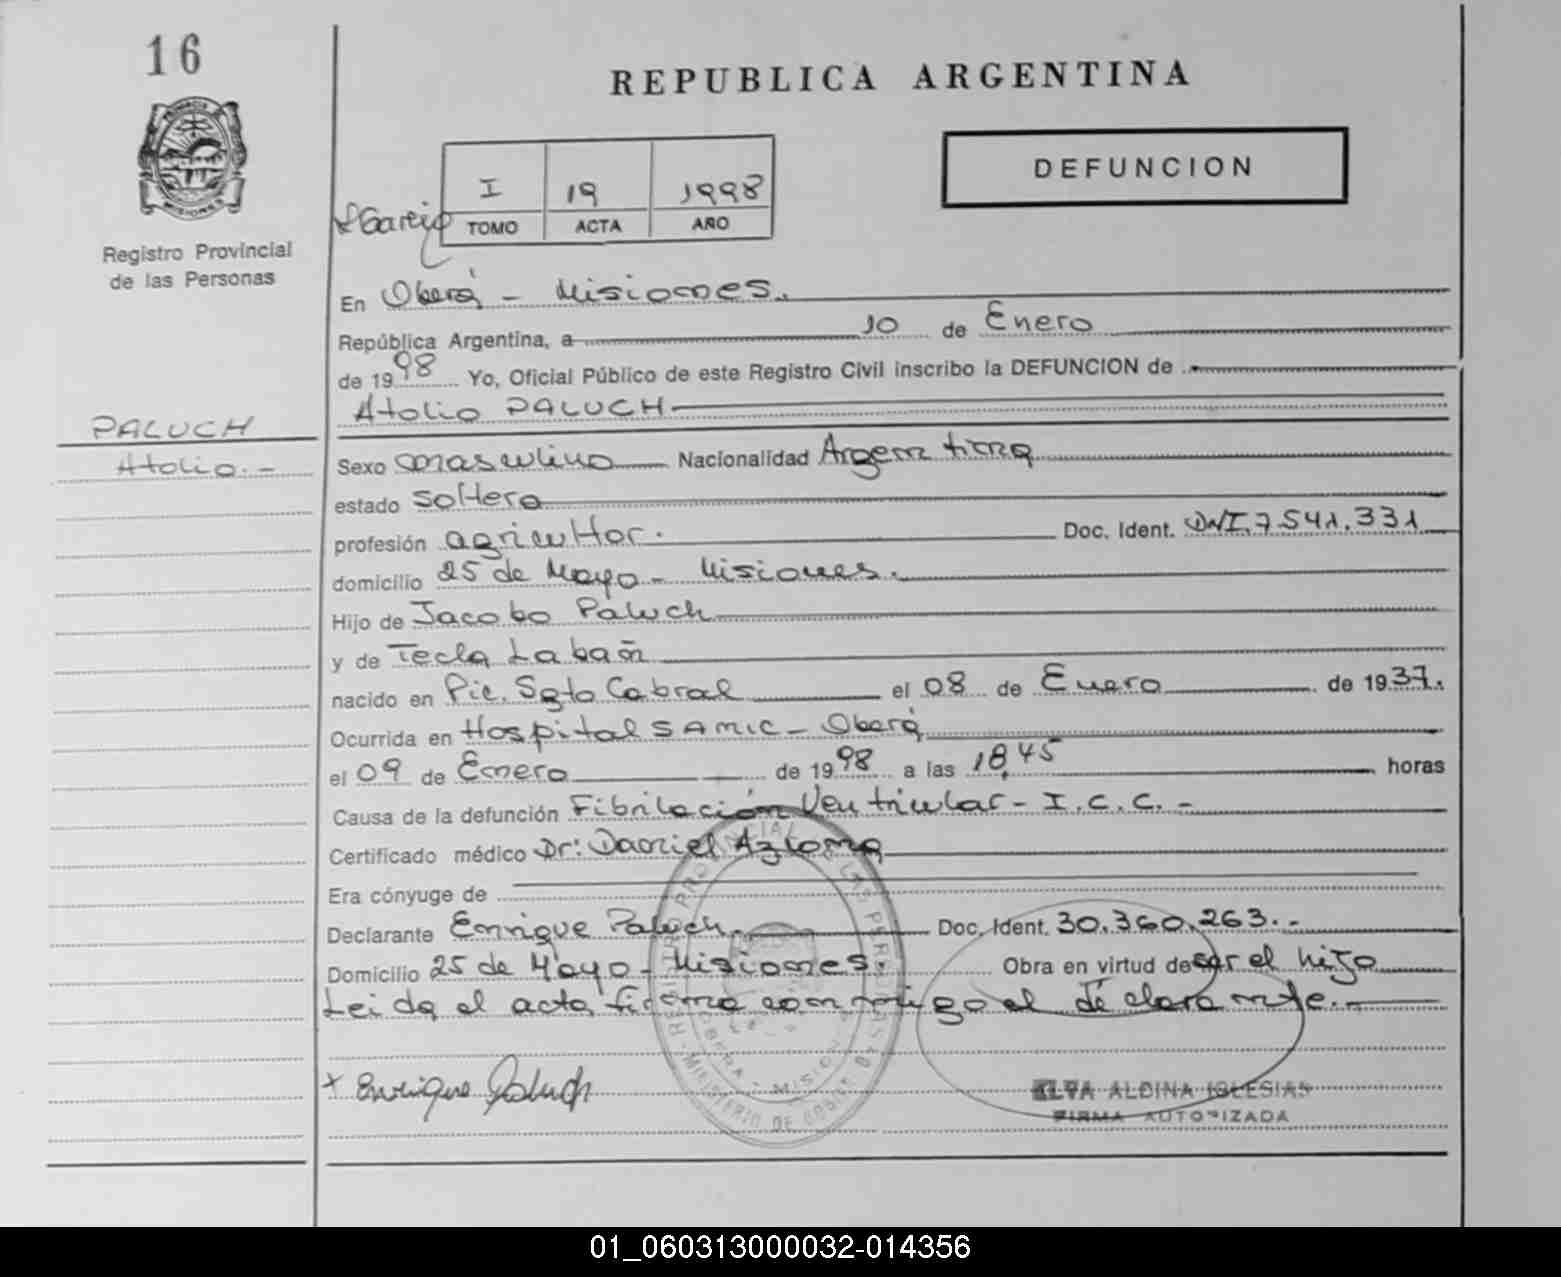 16
REPUBLICA ARGENTINA
DEFUNCION
I 19 1998
TOMO ACTA AÑO
Registro Provincial
de las Personas
En Oberá - Misiones.
República Argentina, a 10 de Enero
de 1998 Yo, Oficial Público de este Registro Civil inscribo la DEFUNCION de
Atolio PALUCH
PALUCH
Atolio.-
Sexo masculino Nacionalidad Argentina
estado soltero
profesión agricultor. Doc. Ident. DNI.7.541.331
domicilio 25 de Mayo - Misiones.
Hijo de Jacobo Paluch
y de Tecla Labañ
nacido en Pic. Sgto Cabral el 08 de Enero de 1937.
Ocurrida en Hospital SAMIC - Oberá
el 09 de Enero de 1998 a las 18,45 horas
Causa de la defunción Fibrilación Ventricular - I.C.C. -
Certificado médico Dr: Daniel
Era cónyuge de
Declarante Enrique Paluch. Doc. Ident. 30.360.263.-
Domicilio 25 de Mayo - Misiones. Obra en virtud de ser el hijo
Leida el acta, firma conmigo el declarante.-
x Enrique Paluch
ELVA ALDINA IGLESIAS
FIRMA AUTORIZADA
01_060313000032-014356